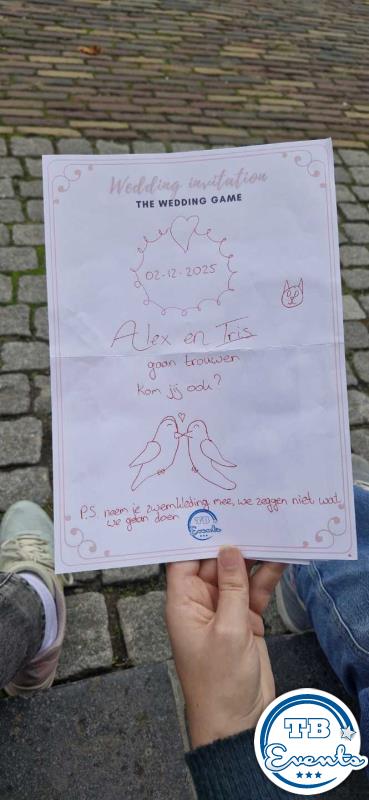 Wedding invitation
THE WEDDING GAME
02-12-2025
Alex en Iris
gaan trouwen
Kom jij ook?
P.S. neem je zwemkleding mee, we zeggen niet wat
we gaan doen
TB
Events
TB
Events